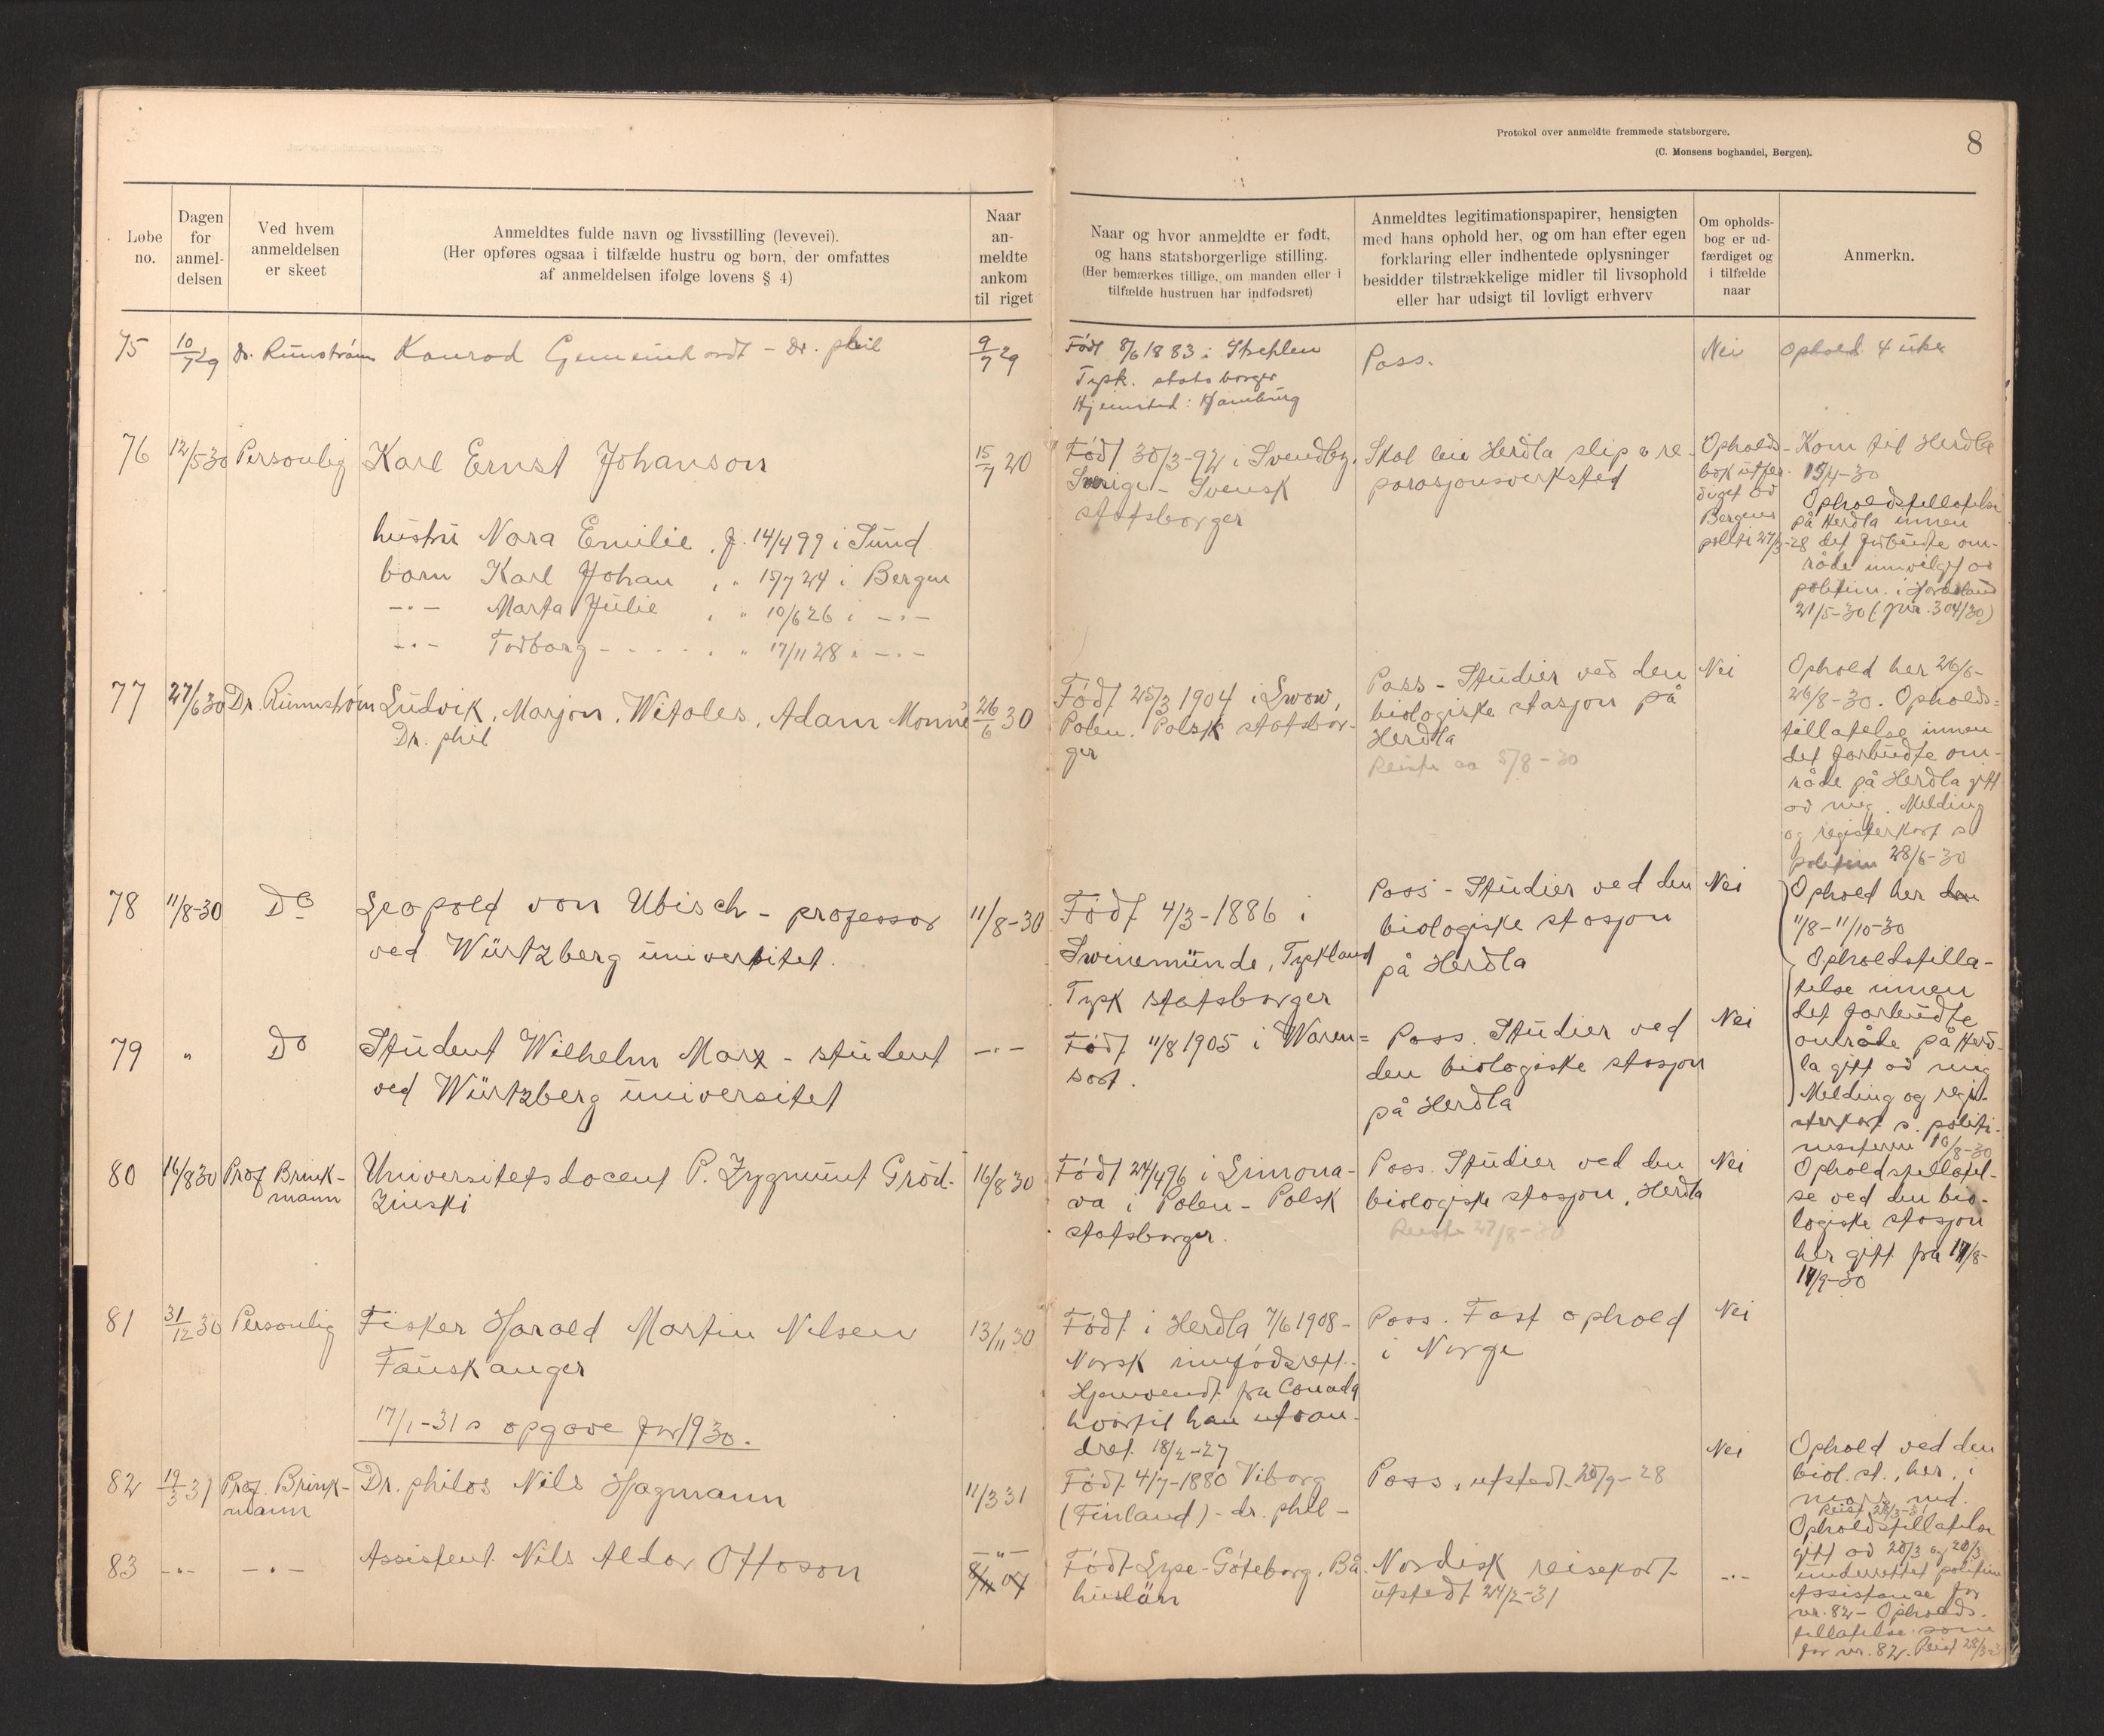 Protokol over anmeldte fremmede statsborgere.
(C. Monsens boghandel, Bergen).
8
Løbe no.
Dagen for anmel-delsen
Ved hvem anmeldelsen er skeet
Anmeldtes fulde navn og livsstilling (levevei).
(Her opføres ogsaa i tilfælde hustru og børn, der omfattes
af anmeldelsen ifølge lovens § 4)
Naar an-meldte ankom til riget
Naar og hvor anmeldte er født,
og hans statsborgerlige stilling.
(Her bemærkes tillige, om manden eller i
tilfælde hustruen har indfødsret)
Anmeldtes legitimationspapirer, hensigten
med hans ophold her, og om han efter egen
forklaring eller indhentede oplysninger
besidder tilstrækkelige midler til livsophold
eller har udsigt til lovligt erhverv
Om opholds-
bog er ud-
færdiget og
i tilfælde
naar
Anmerkn.
75
10/7 29
Dr. Runström
Konrad Gemeinhardt - Dr. phil
9/7 29
Født 8/6 1883 i Strehlen
Tysk. statsborger
Hjemsted: Hamburg
Pass.
Nei
Ophold 4 uker
76
12/5 30
Personlig
Karl Ernst Johanson
hustru Nora Emilie, f. 14/4 99 i Sund
barn Karl Johan , " 15/7 24 i Bergen
-"- Marta Julie , " 10/6 26 i -"-
-"- Torborg - - - - , " 17/11 28 i -"-
15/7 20
Født 30/3-92 i Svendby,
Sverige - Svensk
statsborger
Skal leie Herdla slip & re-
parasjonsverksted
Opholds-
bok utfer-
diget av
Bergens
politi 27/3-28
Kom til Herdla
15/4-30
Opholdstillatelse
på Herdla innen
det forbudte om-
råde innvilget av
politim. i Hordaland
21/5-30 (jnr. 304/30)
77
27/6 30
Dr. Runnstrøm
Ludvik, Marjon, Witoles, Adam Monné
Dr. phil
26/6 30
Født 25/3 1904 i Lwow,
Polen. Polsk statsbor-
ger
Pass - Studier ved den
biologiske stasjon på
Herdla
Reiste 5/8-30
Nei
Ophold her 26/6-
26/8-30. Opholds=
tillatelse innen
det forbudte om-
råde på Herdla gitt
av mig. Melding
og registerkort s
politim 28/6-30
78
11/8-30
Do
Leopold von Ubisch - professor
ved Würtzberg universitet.
11/8-30
Født 4/3-1886 i
Swinemünde, Tyskland
Tysk statsborger
Pass - Studier ved den
biologiske stasjon
på Herdla
Nei
Ophold her
11/8-11/10-30
Opholdstilla-
telse innen
det forbudte
område på Herd-
la gitt av mig
Melding og regi-
sterkort s. politi-
mesteren 10/8-30
79
"
Do
Student Wilhelm Marx - student
ved Würtzberg universitet
-"-
Født 11/8 1905 i Waren=
dorf.
Pass. Studier ved
den biologiske stasjon
på Herdla
Nei
80
16/8 30
Prof Brink-
mann
Universitetsdocent P. Zygmunt Grod-
zinski
16/8 30
Født 24/4 96 i Limona-
va i Polen - Polsk
statsborger.
Pass. Studier ved den
biologiske stasjon, Herdla
Reiste 27/8-30
Nei
Opholdstillatel-
se ved den bio-
logiske stasjon
her gitt fra 17/8-
17/9-30
81
31/12 30
Personlig
Fisker Harald Martin Nilsen
Fauskanger
17/1-31 s opgave for 1930.
13/11 30
Født i Herdla 7/6 1908-
Norsk innfødsrett.
Hjemvendt fra Canada
hvortil han utvan-
dret 18/2-27
Pass. Fast ophold
i Norge
Nei
82
19/3 31
Prof. Brink-
mann
Dr. philos Nils Hagmann
11/3 31
Født 4/7-1880 Viborg
(Finland) - dr. phil -
Pass, utstedt 20/9-28
Nei
Ophold ved den
biol. st., her, i
mars md.
Reist 28/3-31
Opholdstillatelse
gitt av 20/3 og 20/3
underrettet politim
83
-"-
-"-
Assistent Nils Aldor Ottoson
-"-
Født Lyse-Göteborg, Bå-
huslän
Nordisk reisekort
utstedt 24/2-31
-"-
Assistanse for
nr. 82 - Opholds-
tillatelse som
for nr. 82. Reist 28/3-31